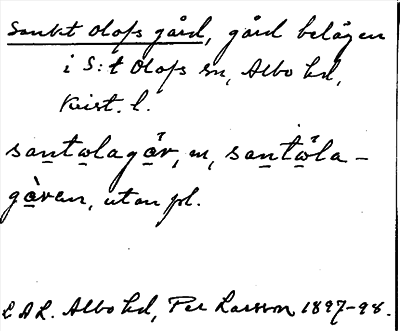 Sankt Olofs gård, gård belägen
i S:t Olofs sn, Albo hd,
Krist. l.
santolagår, m, santöla-
gåren, utan pl.
E A L. Albo hd, Per Larsson 1897-98.